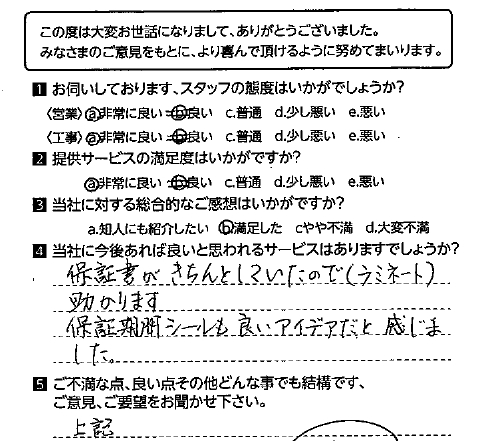 この度は大変お世話になりまして、ありがとうございました。
みなさまのご意見をもとに、より喜んで頂けるように努めてまいります。
1 お伺いしております、スタッフの態度はいかがでしょうか?
〈営業〉 a.非常に良い b.良い c.普通 d.少し悪い e.悪い
〈工事〉 a.非常に良い b.良い c.普通 d.少し悪い e.悪い
2 提供サービスの満足度はいかがですか?
a.非常に良い b.良い c.普通 d.少し悪い e.悪い
3 当社に対する総合的なご感想はいかがですか?
a.知人にも紹介したい b.満足した cやや不満 d.大変不満
4 当社に今後あれば良いと思われるサービスはありますでしょうか?
保証書がきちんとしていたので(ラミネート)
助かります
保証期間シールも良いアイデアだと感じま
した。
5 ご不満な点、良い点その他どんな事でも結構です、
ご意見、ご要望をお聞かせ下さい。
上記